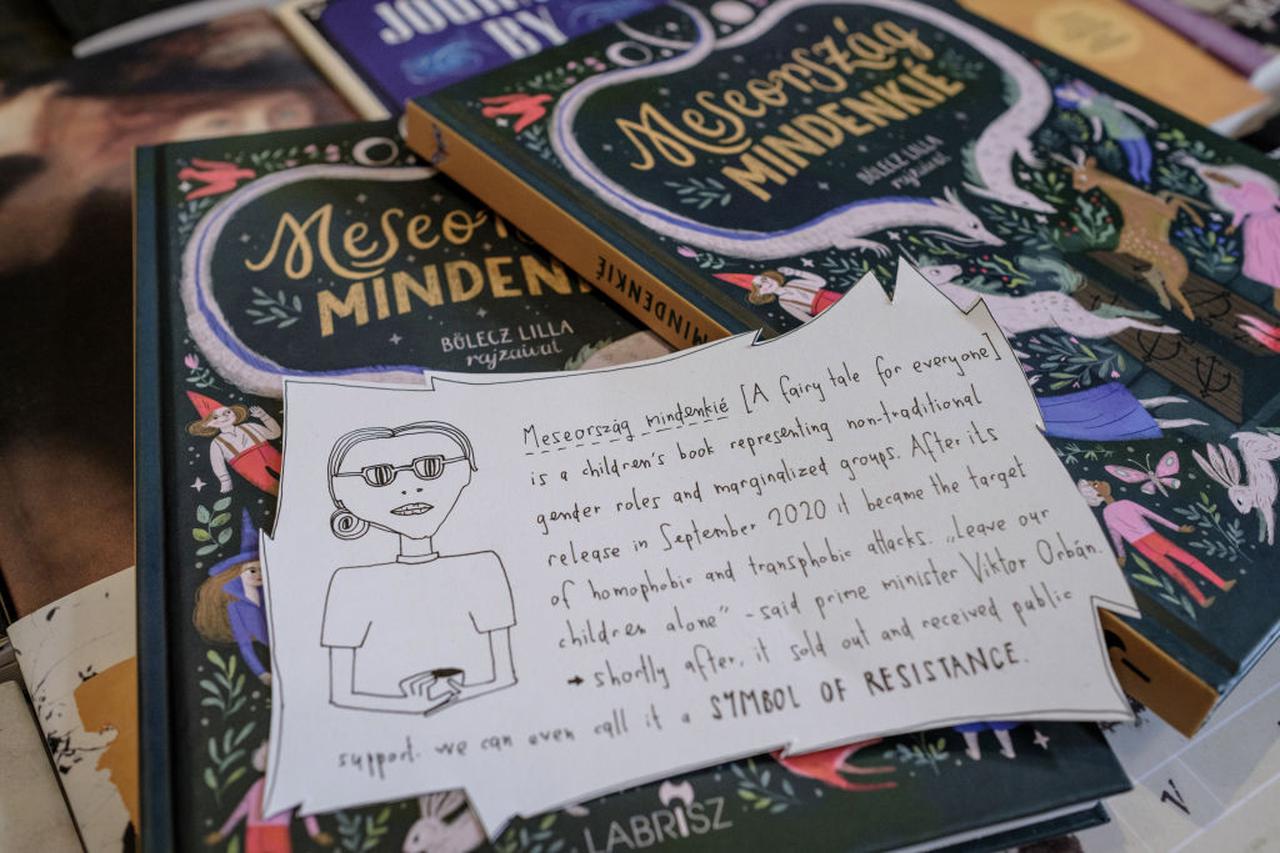 JOURN
BY
Meseország
MINDENKIÉ
BÖLECZ LILLA
rajzaival
Meseor
MINDENK
BÖLECZ LILLA
rajzaival
MINDENKIÉ
Meseország mindenkié [A fairy tale for everyone]
is a children's book representing non-traditional
gender roles and marginalized groups. After its
release in September 2020 it became the target
of homophobic and transphobic attacks. „Leave our
children alone" - said prime minister Viktor Orbán.
→ shortly after, it sold out and received public
support. we can even call it a SYMBOL OF RESISTANCE.
LABRISZ